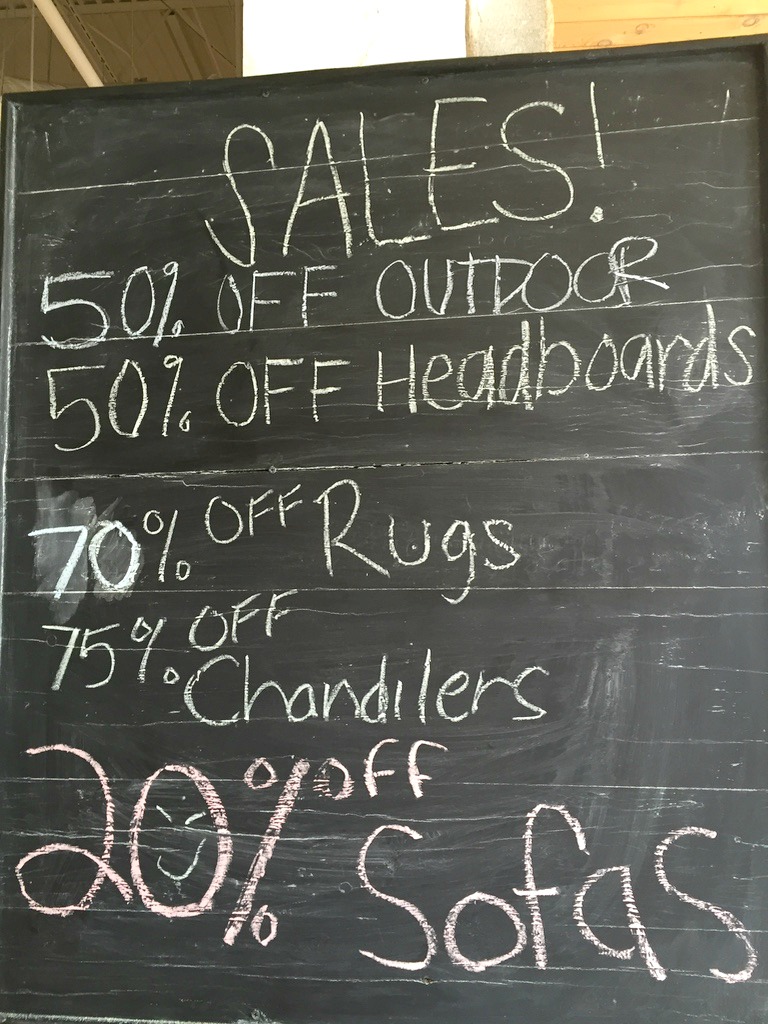 SALES!
50% OFF OUTDOOR
50% OFF Headboards
70% OFF Rugs
75% OFF
Chandilers
20% OFF
Sofas